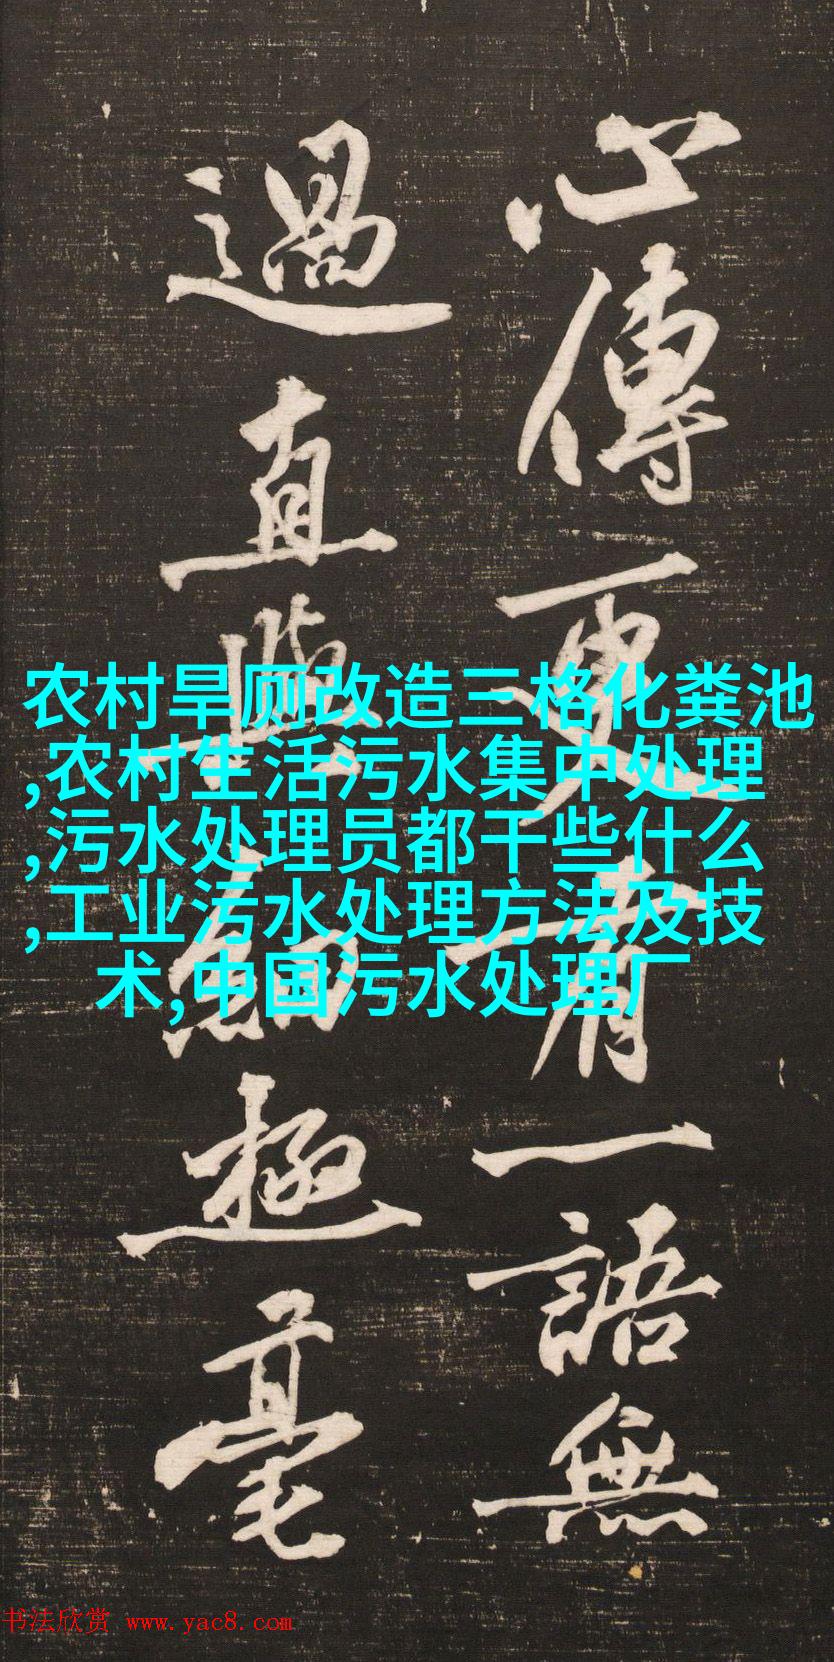 心傳更有一語無
過直與
極毫
农村旱厕改造三格化粪池
,农村生活污水集中处理
,污水处理员都干些什么
,工业污水处理方法及技
术,中国污水处理厂
书法欣赏 www.yac8.com